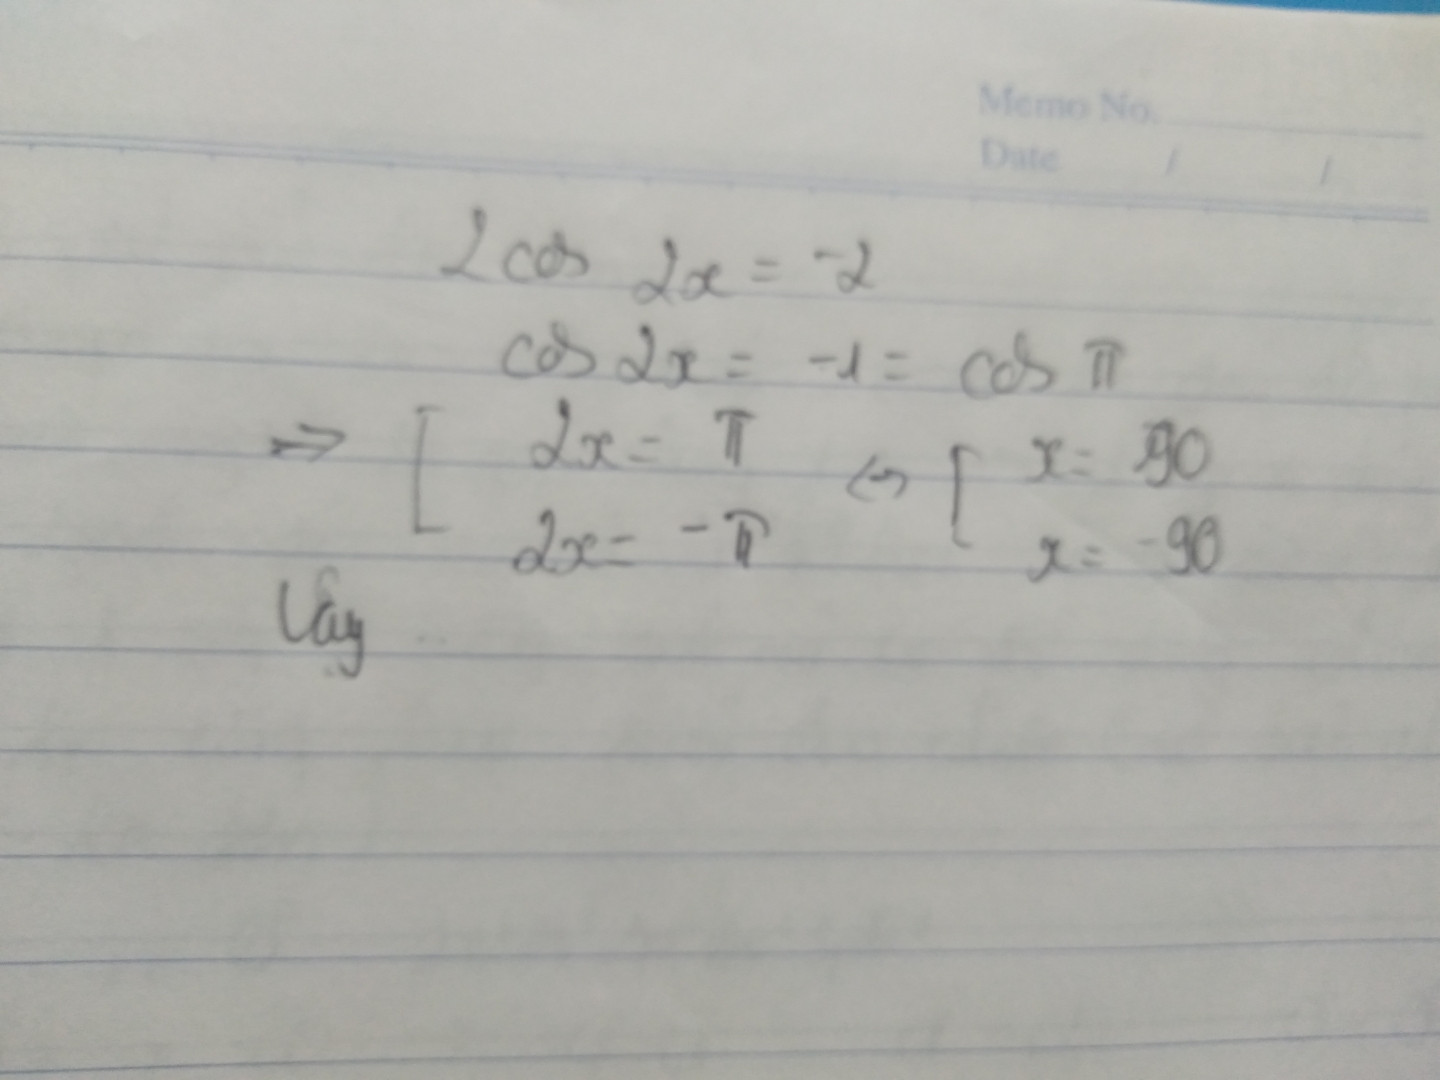 Memo No.
Date / /
2cos 2x = -2
cos 2x = -1 = cos π
⇒ [ 2x = π ↔ [ x = 90
2x = -π x = -90
Vậy ..